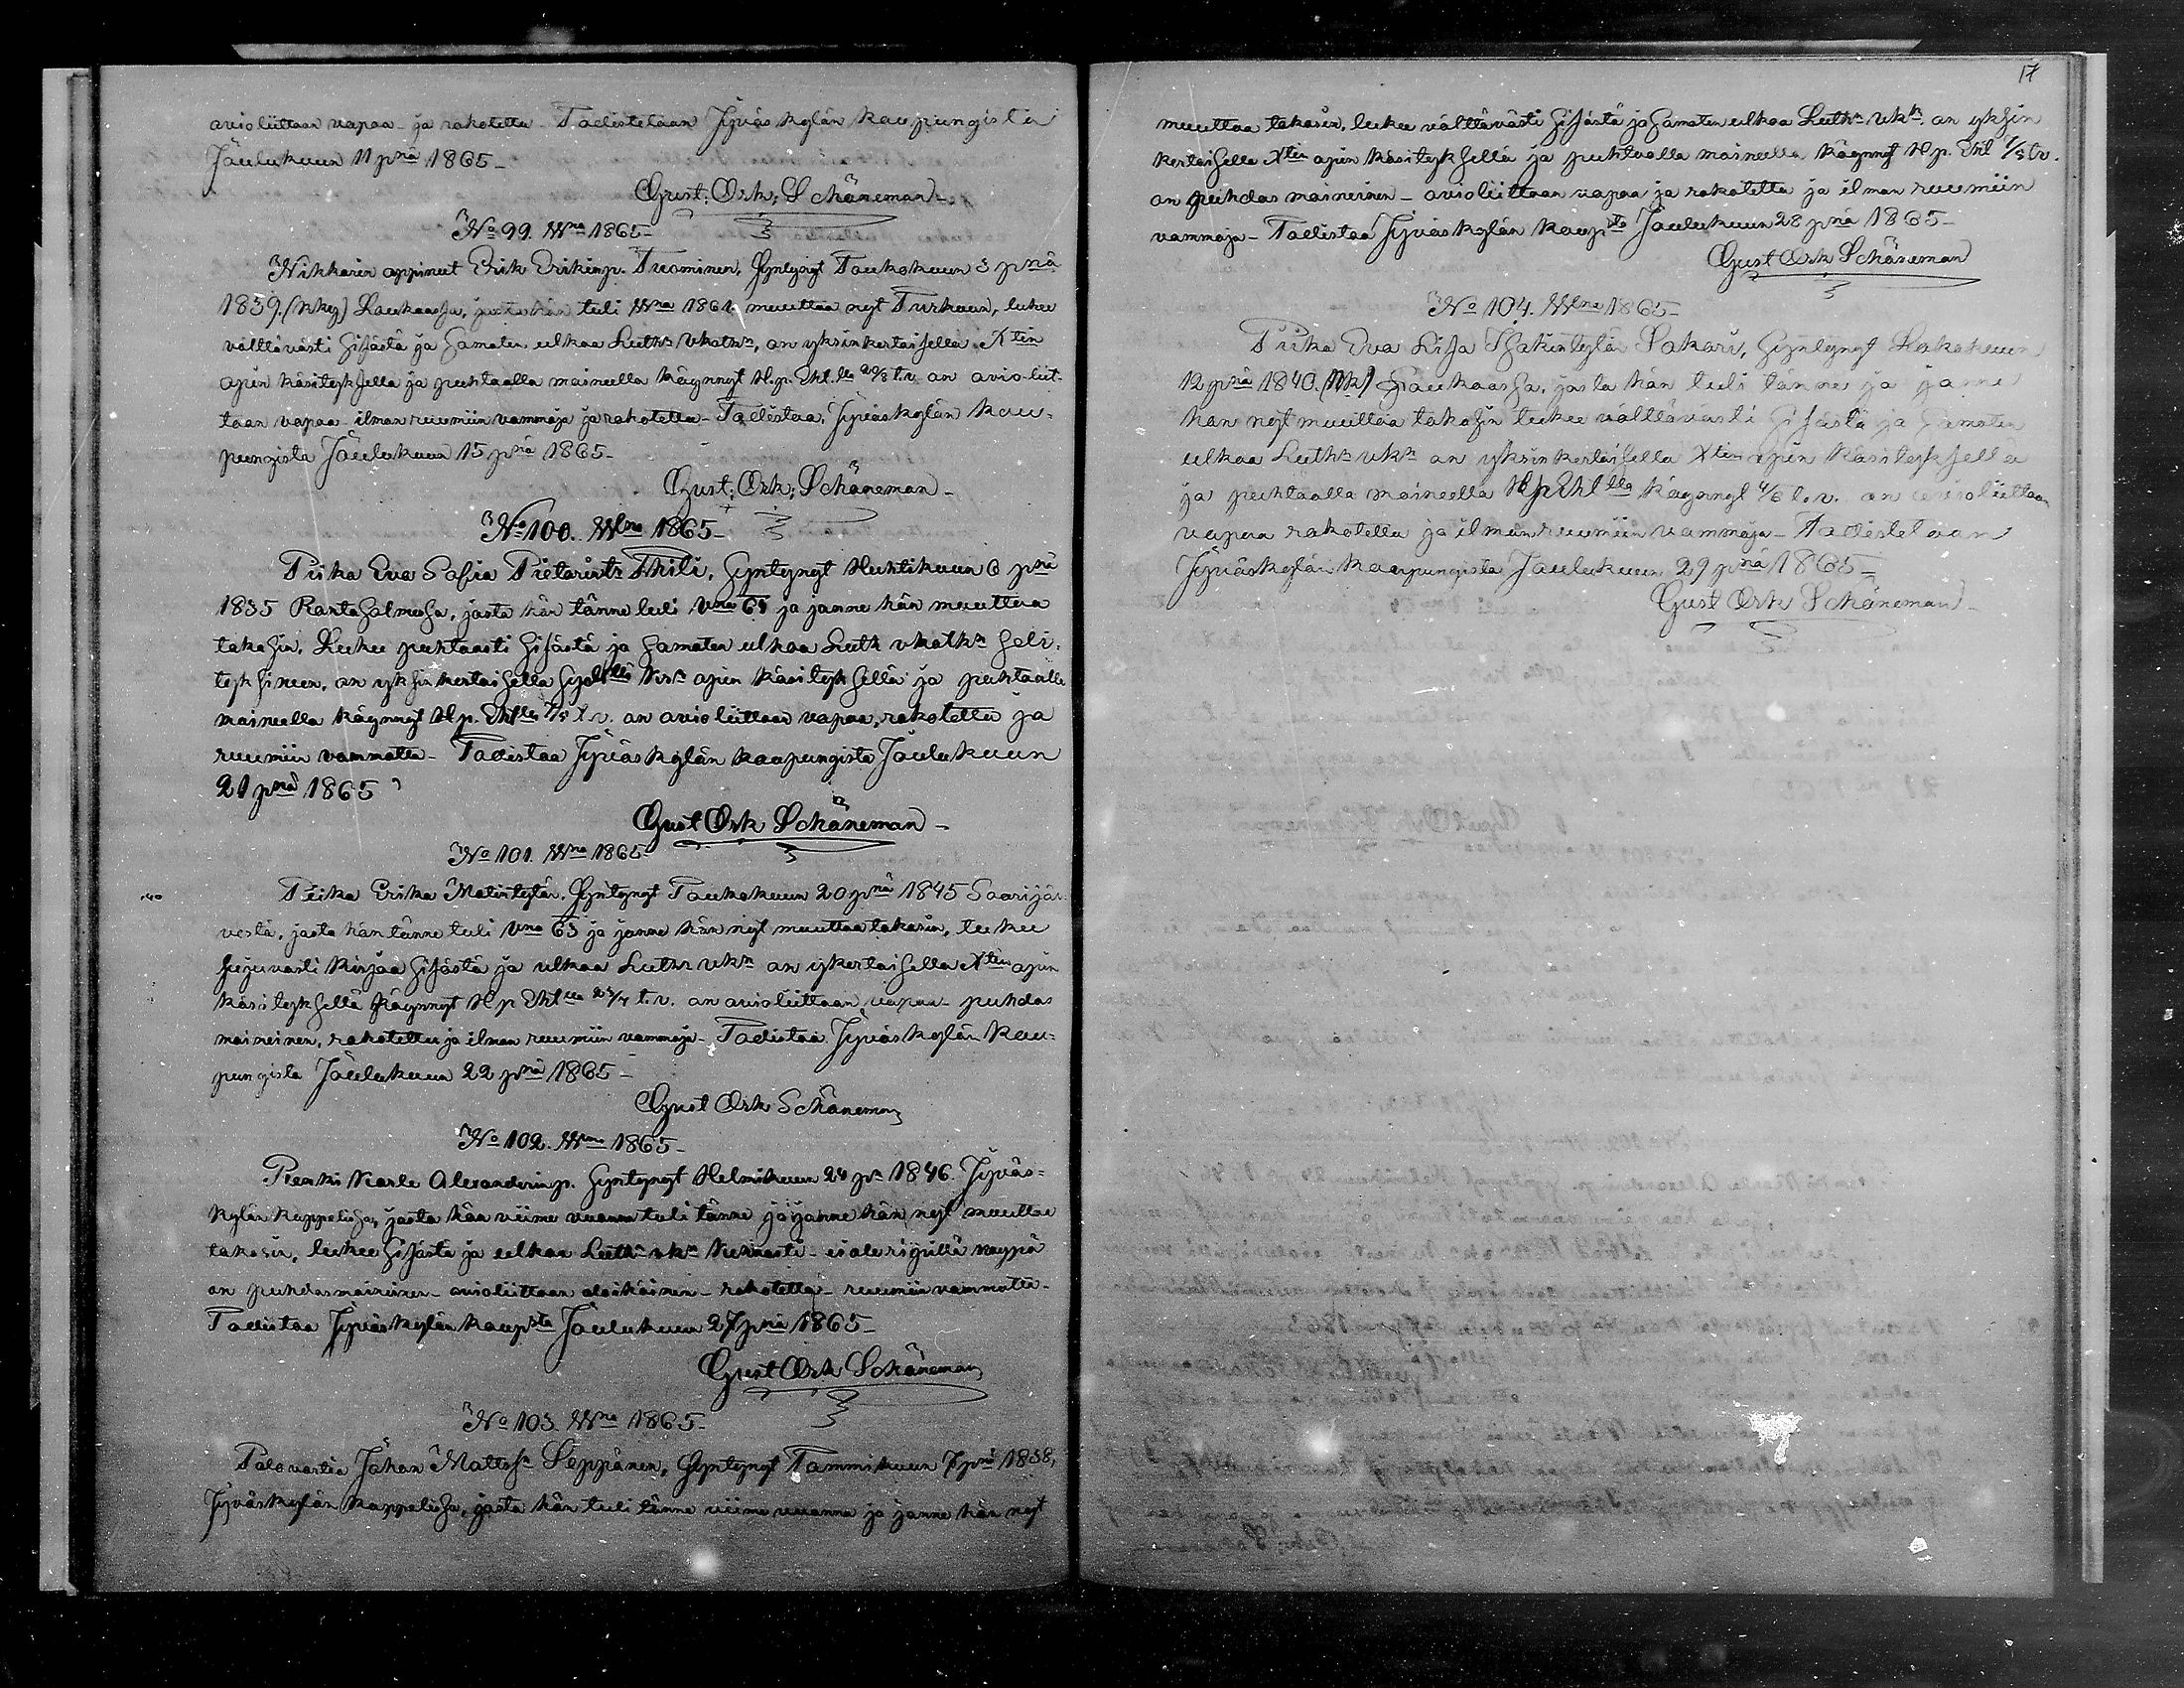 avioliittoon vapaa - ja rokotettu - Todistetaan Jyväskylän kaupungista
Joulukuun 11 pnä 1865 -
Gust: Osk: Schöneman -
No 99. Wna 1865 -
Nikkarin oppineet Erik Erikinp. Tuominen, Syntynyt Toukokuun 3 pnä
1839. (nky) Laukaassa, josta hän tuli Wna 1861. muuttaa nyt Turkuun, lukee
välttävästi sisästä ja samaten ulkoa Luthn Vkathn, on yksinkertaisella Xtin
opin käsityksellä ja puhtaalla maineella käynnyt H.p. Ehtlla t.v. on avio-liit-
toon vapaa - ilman ruumiin vammoja ja rokotettu - Todistaa, Jyväskylän kau-
pungista Joulukuun 15 pnä 1865 -
Gust: Osk: Schöneman -
No 100. Wlna 1865 -
Piika Eva Sofia Pietarintr Thili, Syntynyt Huhtikuun 6 pnä
1835 Rantasalmessa, josta hän tänne tuli Vna ja jonne hän muuttaa
takasin. Lukee puhtaasti sisästä ja samaten ulkoa Luth vkathn seli-
tyksineen, on yksinkertaisella opin käsityksellä ja puhtaalla
maineella käynnyt H.p. Ehtlla t.v. on avioliittoon vapaa, rokotettu ja
ruumiin vammatta - Todistaa Jyväskylän kaupungista Joulukuun
21 pnä 1865
Gust Osk Schöneman -
No 101. Wna 1865 -
Piika Erika Matintytär, Syntynyt Toukokuun 20 pnä 1845 Saarijär-
vestä, josta hän tänne tuli Vna 63 ja jonne hän nyt muuttaa takasin, lukee
sujuvasti kirjaa sisästä ja ulkoa Luthn vkn on ykertaisella Xtin opin
käsityksellä käynnyt H p Ehtlla t.v. on avioliittoon vapaa - puhdas
maineinen, rokotettu ja ilman ruumiin vammoja - Todistaa Jyväskylän Kau-
pungista Joulukuun 22 pnä 1865 -
Gust Osk Schöneman
No 102. Wna 1865 -
Renki Karle Alexanderinp. Syntynyt Helmikuun 24 pn 1846. Jyväs-
kylän Kappelissa, josta hän viime vuonna tuli tänne ja jonne hän nyt muuttaa
takasin, lukee sisästä ja ulkoa Luthn vkn - ei ole ripillä käypä
on puhdasmaineinen - avioliittoon alaikäinen - rokotettu - ruumiin vammatta -
Todistaa Jyväskylän kaupsta Joulukuun 27 pnä 1865 -
Gust Osk Schöneman
No 103. Wna 1865 -
Palovartia Johan Mattssn Seppänen, Syntynyt Tammikuun 7 pnä 1838,
Jyväskylän kappelissa, josta hän tuli tänne viime vuonna ja jonne hän nyt
17
muuttaa takasin, lukee välttävästi sisästä ja samaten ulkoa Luthn vkn. on yksin
kertaisella Xtin opin käsityksellä ja puhtaalla maineella käynnyt H.p. Ehtl t.v.
on puhdas maineinen - avioliittoon vapaa ja rokotettu ja ilman ruumiin
vammoja - Todistaa Jyväskylän kaupsta Joulukuun 28 pnä 1865 -
Gust Osk Schöneman
No 104. Wlna 1865 -
Piika Eva Lisa Isakintytär Sakari, Syntynyt Lokakuun
12 pnä 1840. (Nk) Laukaassa, josta hän tuli tänne ja jonne
hän nyt muuttaa takasin lukee välttävästi sisästä ja samaten
ulkoa Luthn vkn on yksinkertaisella Xtin opin käsityksellä
ja puhtaalla maineella H p Ehtlla käynnyt t.v. on avioliittoon
vapaa rokotettu ja ilman ruumiin vammoja - Todistetaan
Jyväskylän kaupungista Joulukuun 29 pnä 1865 -
Gust Osk Schöneman -